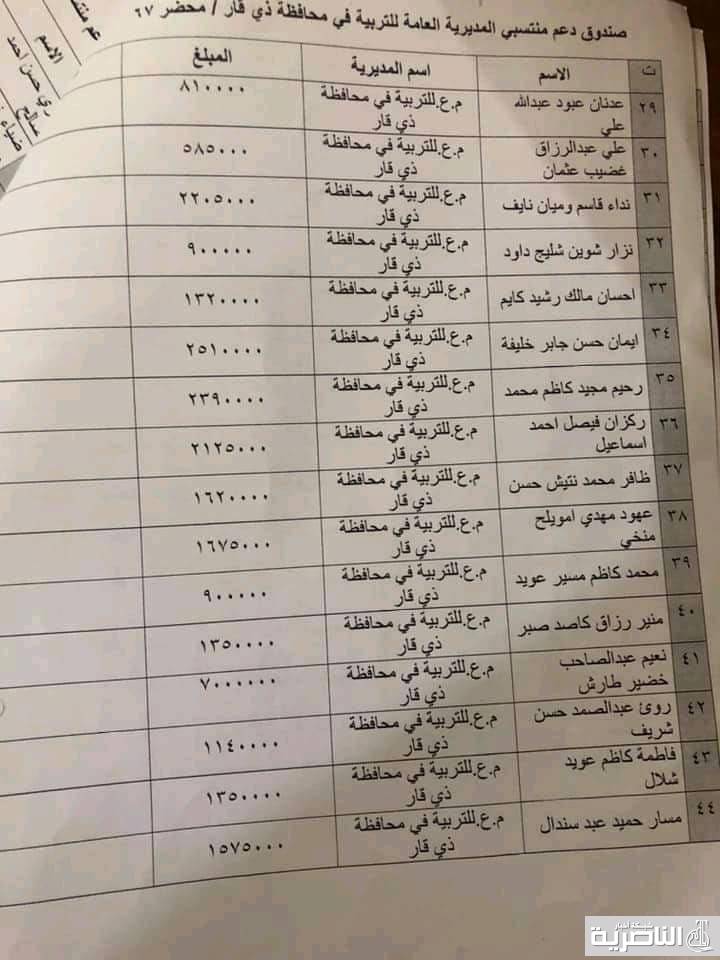 صندوق دعم منتسبي المديرية العامة للتربية في محافظة ذي قار / محضر ٦٧
ت الاسم اسم المديرية المبلغ
٢٩ عدنان عبود عبدالله م.ع.للتربية في محافظة ٨١٠٠٠٠
علي ذي قار
٣٠ علي عبدالرزاق م.ع.للتربية في محافظة ٥٨٥٠٠٠
غضيب عثمان ذي قار
٣١ نداء قاسم وميان نايف م.ع.للتربية في محافظة ٢٢٠٥٠٠٠
ذي قار
٣٢ نزار شوين شليج داود م.ع.للتربية في محافظة ٩٠٠٠٠٠
ذي قار
٣٣ احسان مالك رشيد كايم م.ع.للتربية في محافظة ١٣٢٠٠٠٠
ذي قار
٣٤ ايمان حسن جابر خليفة م.ع.للتربية في محافظة ٢٥١٠٠٠٠
ذي قار
٣٥ رحيم مجيد كاظم محمد م.ع.للتربية في محافظة ٢٣٩٠٠٠٠
ذي قار
٣٦ ركزان فيصل احمد م.ع.للتربية في محافظة ٢١٢٥٠٠٠
اسماعيل ذي قار
٣٧ ظافر محمد نتيش حسن م.ع.للتربية في محافظة ١٦٢٠٠٠٠
ذي قار
٣٨ عهود مهدي امويلح م.ع.للتربية في محافظة ١٦٧٥٠٠٠
منخي ذي قار
٣٩ محمد كاظم مسير عويد م.ع.للتربية في محافظة ٩٠٠٠٠٠
ذي قار
٤٠ منير رزاق كاصد صبر م.ع.للتربية في محافظة ١٣٥٠٠٠٠
ذي قار
٤١ نعيم عبدالصاحب م.ع.للتربية في محافظة ٧٠٠٠٠٠٠
خضير طارش ذي قار
٤٢ روئ عبدالصمد حسن م.ع.للتربية في محافظة ١١٤٠٠٠٠
شريف ذي قار
٤٣ فاطمة كاظم عويد م.ع.للتربية في محافظة ١٣٥٠٠٠٠
شلال ذي قار
٤٤ مسار حميد عبد سندال م.ع.للتربية في محافظة ١٥٧٥٠٠٠
ذي قار
الاسم
ري حسن احمد
صالح
ضياء
شبكة اخبار
الناصرية